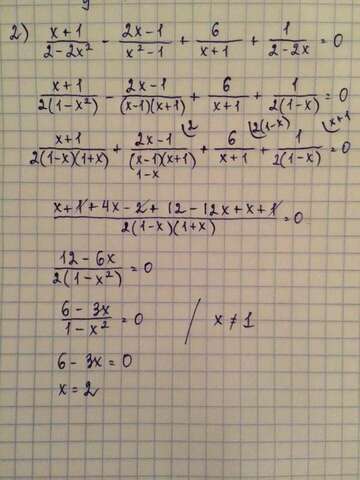 2) (x+1)/(2-2x²) - (2x-1)/(x²-1) + 6/(x+1) + 1/(2-2x) = 0
(x+1)/(2(1-x²)) - (2x-1)/((x-1)(x+1)) + 6/(x+1) + 1/(2(1-x)) = 0
(x+1)/(2(1-x)(1+x)) + (2x-1)/((x-1)(x+1)) 2 1-x + 6/(x+1) 2(1-x) + 1/(2(1-x)) x+1 = 0
(x+1+4x-2+12-12x+x+1)/(2(1-x)(1+x)) = 0
(12-6x)/(2(1-x²)) = 0
(6-3x)/(1-x²) = 0 / x ≠ 1
6-3x = 0
x = 2